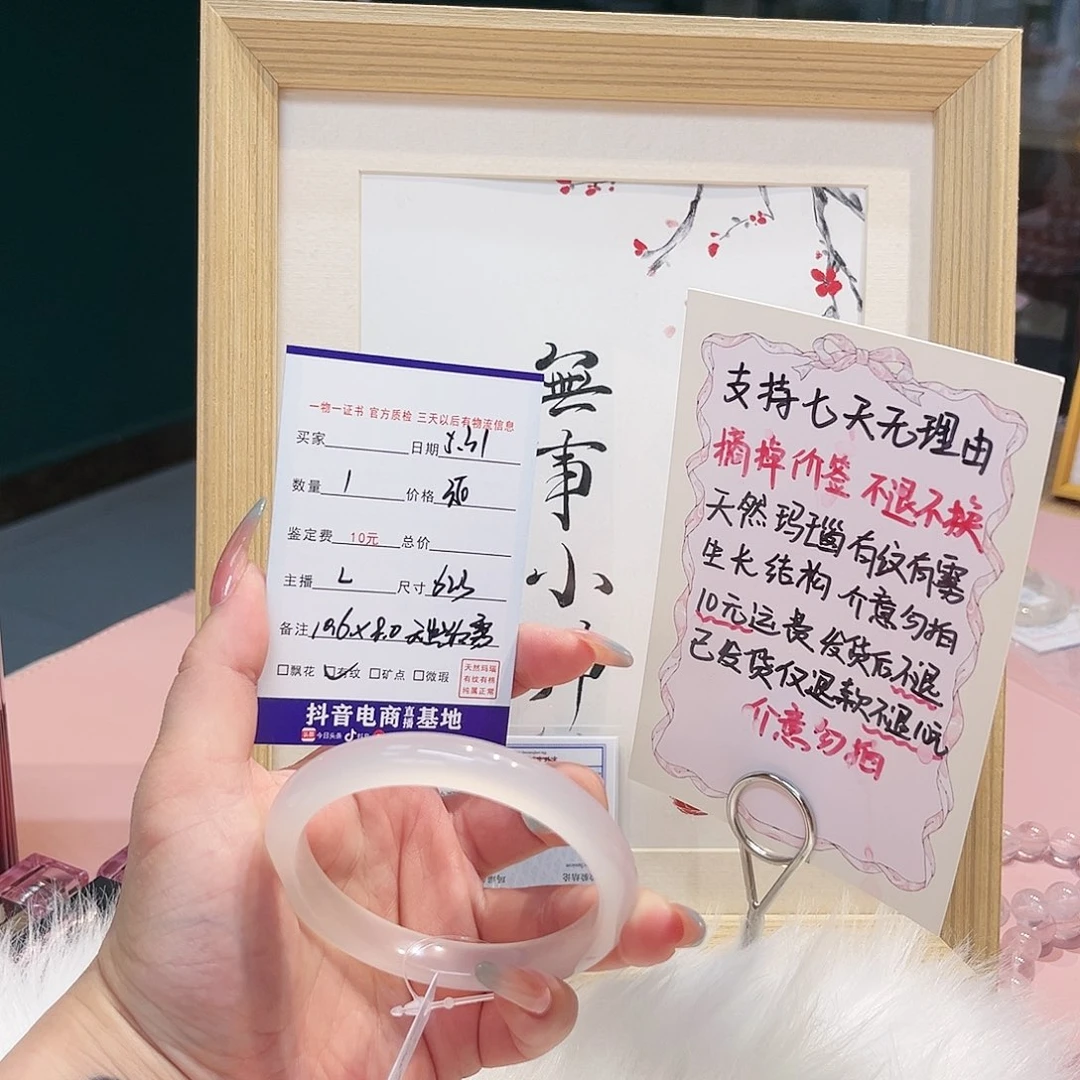 無事小神
一物一证书 官方质检 三天以后有物流信息
买家 日期 5.31
数量 1 价格
鉴定费 10元 总价
主播 L 尺寸
备注
□飘花 □有纹 □矿点 □微瑕
天然玛瑙
有纹有棉
纯属正常
抖音电商直播基地
头条 今日头条 抖音
支持七天无理由
摘掉价签 不退不换
天然玛瑙有纹有雾
生长结构 介意勿拍
10元运费 发货后不退
已发货仅退款不退10元
介意勿拍